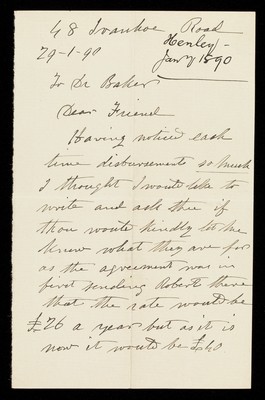 48 Ivanhoe Road
Henley
Jany 1890
29-1-90
To Dr Baker
Dear Friend
Having noticed each
time disbursements so much
I thought I would like to
write and ask thee if
thou would kindly let me
know what they are for
as the agreement was in
first sending Robert there
that the rate would be
£26 a year but as it is
now it would be £40